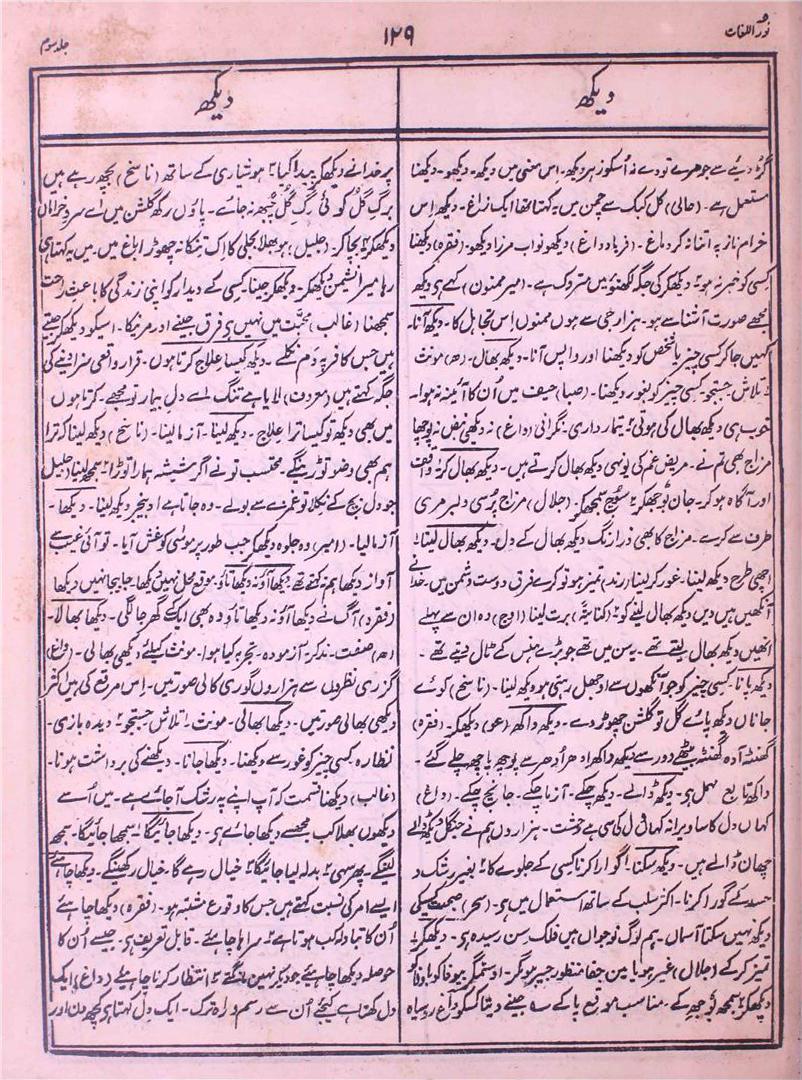 نور اللغات
۱۲۹
جلد سوم
دیکھ
گڑ دیئے سے جو مرے تو دے نہ اُسکو زہر دیکھ۔ اس معنی میں دیکھ۔ دیکھو۔ دیکھنا
مستعمل ہے۔ (حالی) کل کبک سے چمن میں یہ کہتا تھا ایک زاغ۔ دیکھ اِس
خرام ناز پہ اتنا نہ کر دماغ۔ (فریاد داغ) دیکھو نواب مرزا دیکھو۔ (فقرہ) دیکھنا
کسی کو خبر نہ ہو۔ دیکھ کر کی جگہ لکھنؤ میں متروک ہے۔ (میر ممنون) کہے ہی دیکھ
مجھے صورت آشنا سے ہو۔ ہزار جی سے ہوں ممنوں اِس تجاہل کا۔ دیکھ آنا۔
کہیں جا کر کسی چیز یا شخص کو دیکھنا اور واپس آنا۔ دیکھ بھال۔ (ھ) مونث
تلاش جستجو۔ کسی چیز کو بغور دیکھنا۔ (صبا) حیف میں اُن کا آئینہ نہ ہوا۔
خوب ہی دیکھ بھال کی ہوتی۔ تیمار داری۔ نگرانی (داغ) نہ دیکھی نبض نہ پوچھا
مزاج بھی تم نے۔ مریض غم کی یونہی دیکھ بھال کرتے ہیں۔ دیکھ بھال کر۔ واقف
اور آگاہ ہو کر۔ جان بوجھکر۔ سوچ سمجھکر۔ (جلال) مزاج پُرسی دلبر مری
طرف سے کرے۔ مزاج کا بھی ذرا رنگ دیکھ بھال کے دل۔ دیکھ بھال لینا۔
اچھی طرح دیکھ لینا۔ غور کر لینا (رند) تمیز ہو تو کرے فرق دوست دشمن میں۔ خدا نے
آنکھیں ہیں دیں دیکھ بھال لینے کو۔ (کنایۃً) برت لینا (اوج) وہ ان سے پہلے
انھیں دیکھ بھال لیتے تھے۔ یہ سن میں تھے جو بڑے ہنس کے ٹال دیتے تھے۔
دیکھ پانا۔ کسی چیز کو جو آنکھوں سے اوجھل رہتی ہو دیکھ لینا۔ (ناسخ) کوئے
جاناں دیکھ پائے گل تو گلشن چھوڑ دے۔ دیکھ داکھ (عو) دیکھکر۔ (فقرہ)
گھنٹہ آدھ گھنٹہ بیٹھے دور سے دیکھ داکھ ادھر اُدھر سے پوچھ پاچھ چلے گئے۔
داکھ تابع مہمل ہی۔ دیکھ ڈالے۔ دیکھ چکے۔ آزما چکے۔ جانچ چکے۔ (داغ)
کہاں دل کا سا ویرانہ کہاں دل کی سی ہے وحشت۔ ہزاروں ہم نے جنگل دیکھ ڈالے
چھان ڈالے ہیں۔ دیکھ سکنا۔ گوارا کرنا کسی کے جلوے کا۔ بغیر رشک و
حسد کے گوارا کرنا۔ اکثر سلب کے ساتھ استعمال میں ہی۔ (سحر) صحبت کسیکی
دیکھ نہیں سکتا آسماں۔ ہم لوگ نوجواں ہیں فلک سن رسیدہ ہی۔ دیکھکر۔
تمیز کر کے (جلال) غیر ہو یا مین جفا منظور جسپر ہو مگر۔ او ستمگر بیوفا کو باوفا کو
دیکھکر۔ سمجھ بوجھ کے۔ مناسب موقع پا کے۔ جینے دیتا کسکو داغ روسیاہ
دیکھ
پر خدا نے دیکھکر پیدا کیا۔ ہوشیاری کے ساتھ (ناسخ) بچھ رہے ہیں
برگ گل کوئی رگ گل چبھ نہ جائے۔ پاؤں رکھ گلشن میں اے سرو خراماں
دیکھکر۔ بچا کر۔ (جلیل) ہو بھلا بجلی کا اِک تنکا نہ چھوڑا باغ میں۔ میں یہ کہتا ہی
رہا میرا نشیمن دیکھکر۔ دیکھکر جینا۔ کسی کے دیدار کو اپنی زندگی کا باعث راحت
سمجھنا (غالب) محبت میں نہیں ہی فرق جینے اور مرنیکا۔ اسیکو دیکھکر جیتے
ہیں جس کافر پہ دم نکلے۔ دیکھ کیسا علاج کرتا ہوں۔ قرار واقعی سزا دینے کی
جگہ کہتے ہیں (معروف) لایا ہے تنگ اے دل بیمار تو مجھے۔ کرتا ہوں
میں بھی دیکھ تو کیسا ترا علاج۔ دیکھ لینا۔ آزما لینا۔ (ناسخ) دیکھ لینا کہ ترا
ہم بھی وضو توڑینگے۔ محتسب تو نے اگر شیشہ ہمارا توڑا۔ سمجھ لینا (جلیل)
جو دل بچ کے نکلا تو غمزے سے بولے۔ وہ جاتا ہے او بیخبر دیکھ لینا۔ دیکھا۔
آزما لیا۔ (امیر) وہ جلوہ دیکھکر جب طور پر موسیٰ کو غش آیا۔ تو آئی غیب سے
آواز دیکھا ہم نہ کہتے تھے۔ دیکھا آؤ نہ دیکھا تاؤ۔ موقع محل نہیں دیکھا۔ جا بیجا نہیں دیکھا
(فقرہ) آگ نے دیکھا آؤ نہ دیکھا تاؤ وہ بھی ایک گھر جا لگی۔ دیکھا بھالا۔
(ھ) صفت۔ مذکر۔ آزمودہ۔ تجربہ کیا ہوا۔ مونث کیلئے دیکھی بھالی۔ (داغ)
گزری نظروں سے ہزاروں گوری کالی صورتیں۔ اس مرقع کی ہیں اکثر
دیکھی بھالی صورتیں۔ دیکھا بھالی۔ مونث۔ تلاش جستجو۔ دیدہ بازی۔
نظارہ کسی چیز کو غور سے دیکھنا۔ دیکھا جانا۔ دیکھنے کی برداشت ہونا۔
(غالب) دیکھنا قسمت کہ آپ اپنے پہ رشک آ جائے ہے۔ میں اُسے
دیکھوں بھلا کب مجھسے دیکھا جائے ہی۔ دیکھا جائیگا۔ سمجھا جائیگا۔ سمجھ
لینگے۔ پھر سہی۔ بدلہ لیا جائیگا۔ خیال رہے گا۔ خیال رکھینگے۔ دیکھا چاہئے
ایسے امر کی نسبت کہتے ہیں جس کا وقوع مشتبہ ہو۔ (فقرہ) دیکھا چاہئے
اُن کا تبادلہ کب ہوتا ہے۔ سراہا چاہئے۔ قابل تعریف ہی۔ جیسے اُن کا
حوصلہ دیکھا چاہیئے جو دیکر نہیں مانگتے۔ انتظار کرنا چاہئے (داغ) ایک
دل کہتا ہے کیجے اُن سے رسم و راہ ترک۔ ایک دل کہتا ہی کچھ دن اور